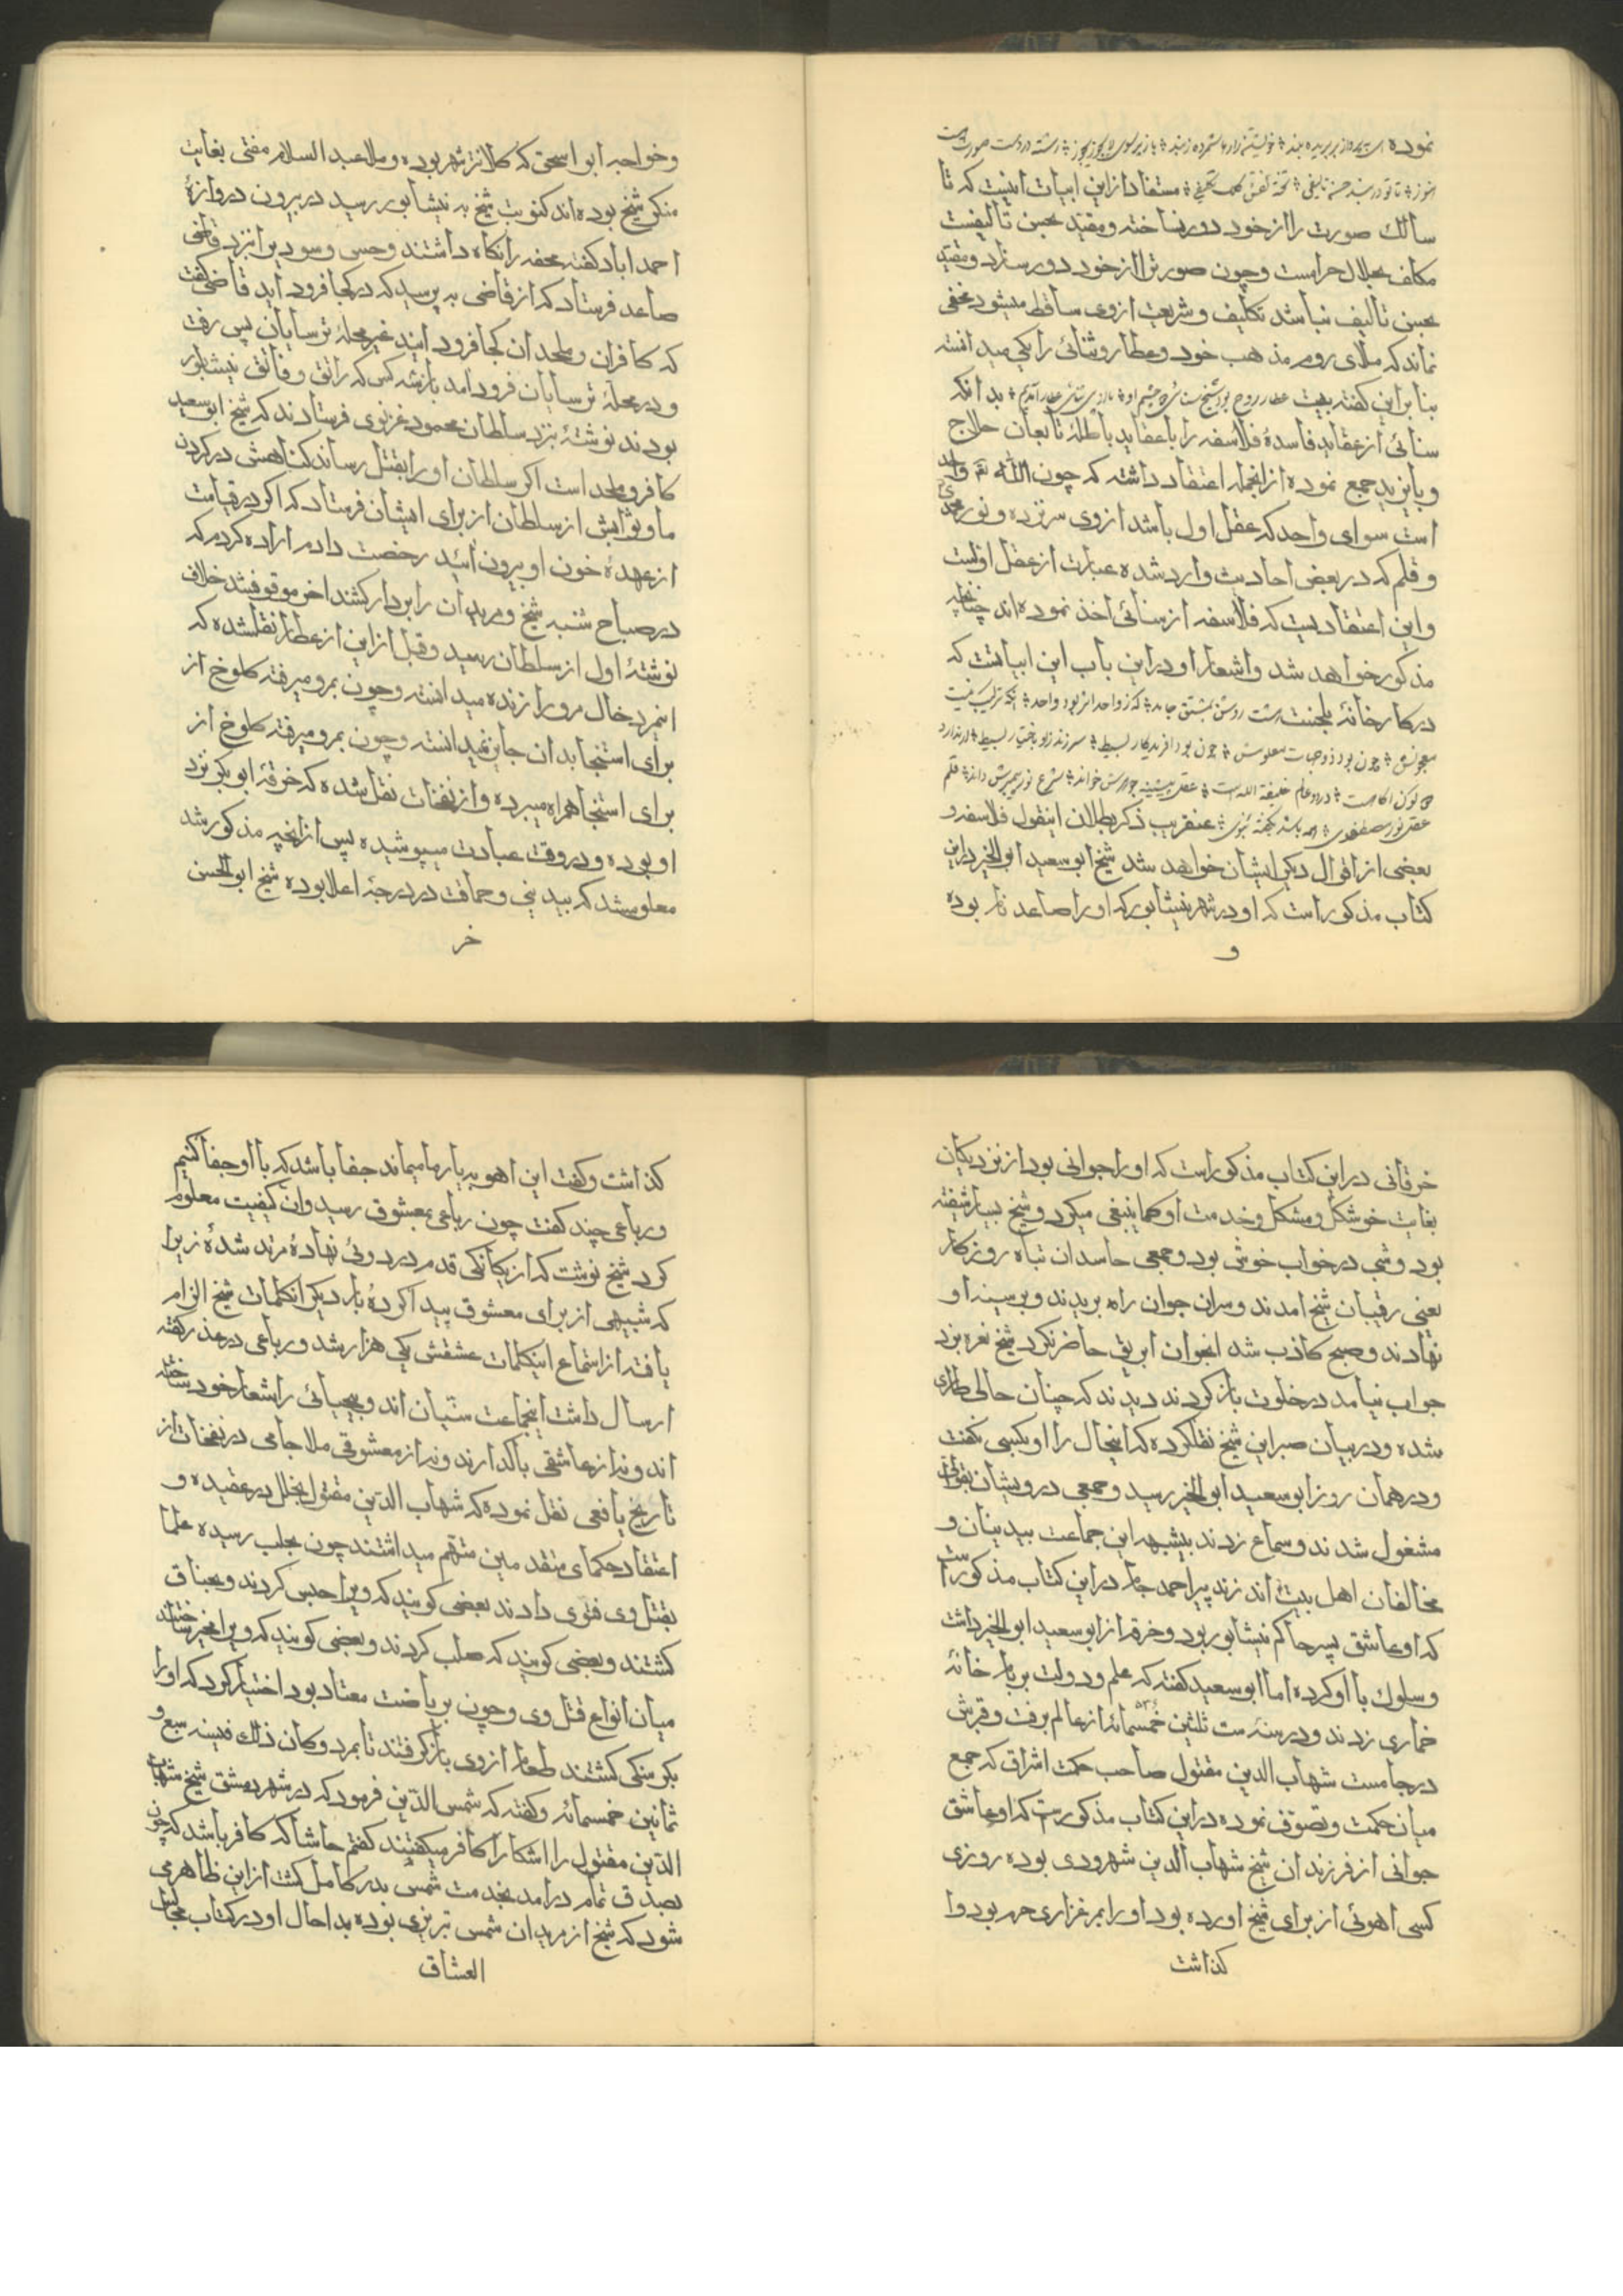 نموده
مستفاد از این ابیات اینست که تا
سالك صورت را از خود دور نساخته و مقید بحسن تألیفست
مکلف بحلال حرامست و چون صورترا از خود دور سازد و مقید
بحسن تألیف نباشد تکلیف و شریعت از وی ساقط میشود مخفی
نماند که ملای روم مذهب خود و عطار و سنائی را یکی میدانسته
بنا بر این کفته بیت عطار روح بود سنائی دو چشم او ما از پی سنائی عطار آمدیم بدانکه
سنائی از عقاید فاسدهٔ فلاسفه را با عقاید باطلهٔ تابعان حلاج
و بایزید جمع نموده از انجمله اعتقاد داشته که چون الله تعـ واحد
است سوای واحد که عقل اول باشد از وی سر نزده و نور محمدی
و قلم که در بعض احادیث وارد شده عبارت از عقل اولست
و این اعتقادیست که فلاسفه از سنائی اخذ نموده اند چنانچه
مذکور خواهد شد و اشعار او در این باب این ابیاتست که
در کارخانهٔ
عقل نور مصطفوی عنقریب ذکر بطلان اینقول فلاسفه و
بعضی از اقوال دیکر ایشان خواهد شد شیخ ابو سعید ابو الخیر در این
کتاب مذکور است که او در شهر نیشابور که او را صاعد نام بوده
و
و خواجه ابو اسحق که کلانتر شهر بوده و ملا عبد السلام مفتی بغایت
منکر شیخ بوده اند کنوبت شیخ به نیشابور رسید در بیرون دروازهٔ
احمد اباد کفته محفه را نکاه داشتند و حسن و سودبن را نزد قاضی
صاعد فرستاد که از قاضی به پرسید که در کجا فرود اید قاضی کفت
که کافران و ملحدان کجا فرود ایند غیر محلهٔ ترسایان پس رفت
و در محلهٔ ترسایان فرود امد باز سه کس که راتق و فاتق نیشابور
بودند نوشتهٔ بنزد سلطان محمود غزنوی فرستادند که شیخ ابو سعید
کافر و ملحد است اکر سلطان او را بقتل رساند کناهش در کردن
ما و ثوابش از سلطان از برای ایشان فرستاد که اکر در قیامت
از عهدهٔ خون او بیرون ائید رخصت دادم اراده کردم که
در صباح شنبه شیخ و مریدان را بر دار کشند اخر موقوفشد خلاف
نوشتهٔ اول از سلطان رسید و قبل از این از عطار نقلشده که
اینمرد خاك مرو را زنده میدانسته و چون بمرو میرفته کلوخ از
برای استنجا بدان جایز نمیدانسته و چون بمرو میرفته کلوخ از
برای استنجا همراه میبرده و از نفحات نقل شده که خرقهٔ ابو بکر نزد
او بوده و در وقت عبادت میپوشیده پس از انچه مذکور شد
معلومشد که بیدینی و حماقت در درجهٔ اعلا بوده شیخ ابو الحسن
خر
خرقانی در این کتاب مذکور است که او را جوانی بود از نزدیکان
بغایت خوشکل و مشکل و خدمت او کماینبغی میکرد و شیخ بسیار شیفته
بود و شبی در خواب خوش بود و جمعی حاسدان تباه روزکار
یعنی رقیبان شیخ امدند و سر ان جوان را بریدند و بر سینهٔ او
نهادند و صبح کاذب شد انجوان ابریق حاضر نکرد شیخ نعره بزد
جواب نیامد در خلوت باز کردند دیدند که چنان حالی طاری
شده و در بیان صبر این شیخ نقلکرده که اینحال را او بکسی نکفت
و در همان روز ابو سعید ابو الخیر رسید و جمعی درویشان بقوالی
مشغول شدند و سماع زدند بیشبهه این جماعت بیدینان و
مخالفان اهل بیت اند زنده پیر احمد جام در این کتاب مذکور است
که او عاشق پسر حاکم نیشابور بود و خرقه از ابو سعید ابو الخیر داشت
و سلوك با او کرده اما ابو سعید کفته که علم و دولت بر بام خانهٔ
خماری زدند و در سنهٔ ست ثلثین خمسمائه از عالم برفت و قبرش
در جامست شهاب الدین مقتول صاحب حکمت اشراق که جمع
میان حکمت و تصوف نموده در این کتاب مذکور ست که او عاشق
جوانی از فرزندان شیخ شهاب الدین شهروردی بوده روزی
کسی اهوئی از برای شیخ اورده بود او را بمرغزاری خرم بود وا
کذاشت
کذاشت و کفت این اهو به یار ما میماند جفا باشد که با او جفا کنیم
و رباعی چند کفت چون رباعی بمعشوق رسید و ان کیفیت معلوم
کرد شیخ نوشت که از یکانکی قدم در دوئی نهادهٔ مرتد شدهٔ زیرا
که شبیهی از برای معشوق پیدا کردهٔ بار دیکر انکلمات شیخ الزام
یافته از استماع اینکلمات عشقش یکی هزار شد و رباعی در عذر کفته
ارسال داشت اینجماعت سنیان اند و بیحیائی را شعار خود ساخته
اند و نه از عاشقی باك دارند و نه از معشوقی ملا جامی در نفحات از
تاریخ یافعی نقل نموده که شهاب الدین مقتول بخلل در عقیده و
اعتقاد حکمای متقدمین متهم میداشتند چون بحلب رسیده علما
بقتل وی فتوی دادند بعضی کویند که ویرا حبس کردند و بخناق
کشتند و بعضی کویند که صلب کردند و بعضی کویند که ویرا مخیر ساختند
میان انواع قتل وی و چون بریاضت معتاد بود اختیار کرد که او را
بکرسنکی کشتند طعام از وی باز کرفتند تا بمرد و کان ذلك فی سنه سبع و
ثمانین خمسمائه و کفته که شمس الدین فرمود که در شهر دمشق شیخ شهاب
الدین مقتول را اشکارا کافر میکفتند کفتم حاشا که کافر باشد که چون
بصدق تمام در امد بخدمت شمس بدر کامل کشت از این ظاهر می
شود که شیخ از مریدان شمس تبریزی بوده بد احال او در کتاب مجالس
العشاق